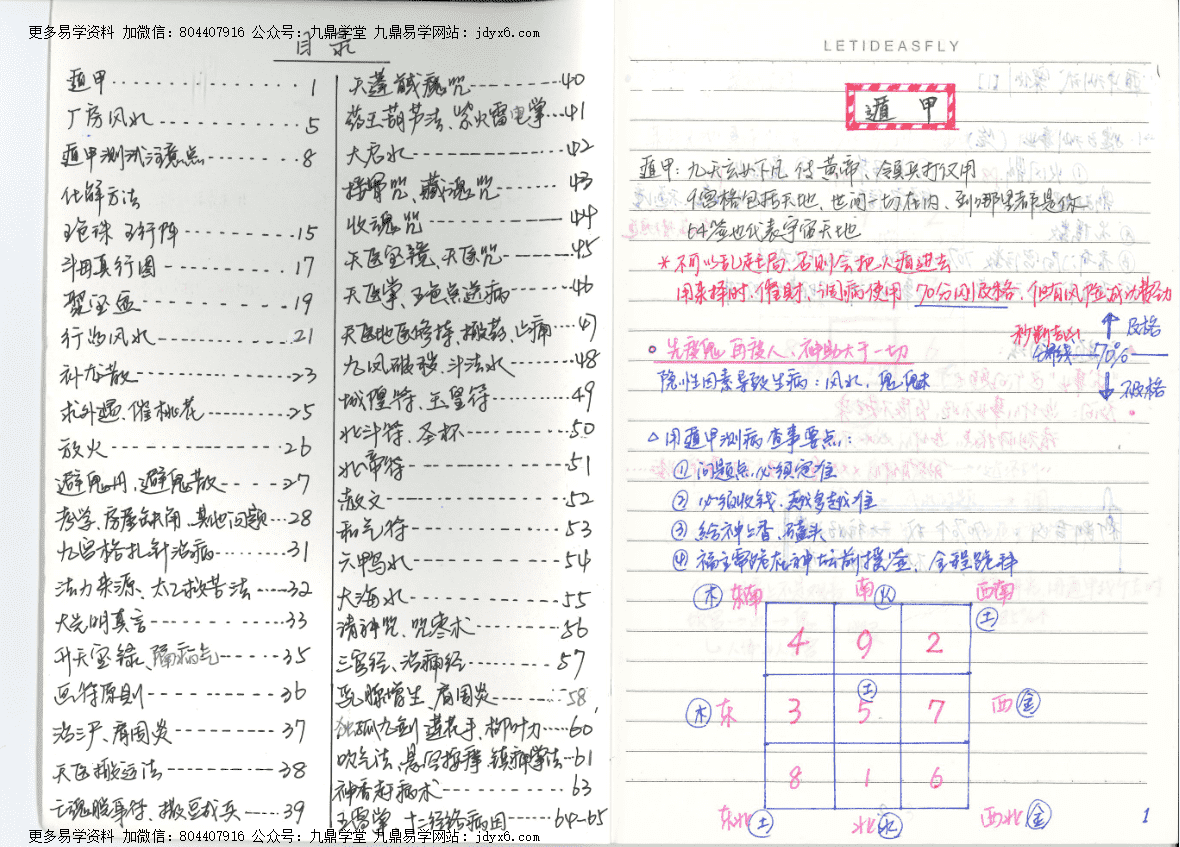 更多易学资料 加微信：804407916 公众号：九鼎学堂 九鼎易学网站：jdyx6.com
目录
遁甲 1
厂房风水 5
遁甲测试注意点 8
化解方法
五色珠 五行阵 15
斗母真行图 17
聚宝盆 19
行为风水 21
补龙散 23
求外遇、催桃花 25
放火 26
避鬼丹、避鬼散 27
考学、房屋缺角、其他问题 28
九宫格扎针治病 31
法力来源、太乙救苦法 32
大光明真言 33
升天宝箓、隔病气 35
画符原则 36
治、肩周炎 37
天医搬运法 38
亡魂脱身符、撒豆成兵 39
天蓬咒 40
药王葫芦法、紫火雷电掌 41
大启水 42
接骨咒、藏魂咒 43
收魂咒 44
天医宝箓、天医咒 45
天医掌、五色点送病 46
天医地医修持、搬药、止痛 47
九凤破秽、斗法水 48
城隍符、玉皇符 49
北斗符、圣杯 50
北帝符 51
散文 52
和气符 53
六鸭水 54
大海水 55
请神咒、咒枣术 56
三官经、治病经 57
乳腺增生、肩周炎 58
独孤九剑 莲花手、柳叶刀 60
吹气法、悬空按摩、镇神掌法 61
神香赶病术 63
五掌 十二经络病因 64-65
更多易学资料 加微信：804407916 公众号：九鼎学堂 九鼎易学网站：jdyx6.com
LETIDEASFLY
遁 甲
遁甲：九天玄女下凡 传黄帝、领兵打仗用
九宫格包括天地、世间一切在内、到哪里都是你
64签也代表宇宙天地
*不可以乱起局、否则会把人遁进去
用来择时、催财、调病使用 70分以上及格、但有风险成功帮助
秒断吉凶
及格
分界线 70%
不及格
先度鬼 再度人、神助大于一切
隐性因素导致生病：风水，鬼魅
△用遁甲测病查事要点：
① 问题点、必须定准
② 必须收钱、越多越准
③ 给神上香、磕头
④ 福主需跪在神坛前摸签，全程跪拜
木 东南 南 火 西南 土
4 9 2
木 东 3 土 5 7 西 金
8 1 6
东北 土 北 水 西北 金
1